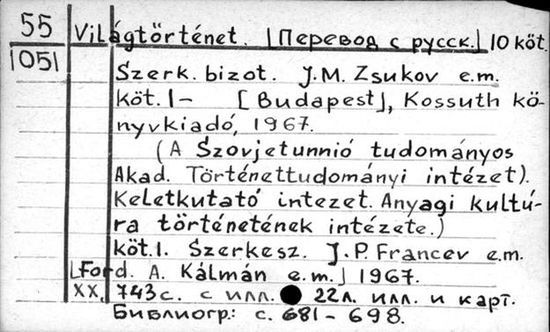 55 Világtörténet. [Перевод с русск.] 10 köt.
1051
Szerk. bizot. J.M. Zsukov e.m.
köt. I- [Budapest], Kossuth kö-
nyvkiadó, 1967.
(A Szovjetunnió tudományos
Akad. Történettudományi intézet).
Keletkutató intezet. Anyagi kultú-
ra történetének intézete.)
köt. I. Szerkesz. J.P. Francev e.m.
[Ford. A. Kálmán e.m.] 1967.
XX, 743 с. с илл. 22 л. илл. и карт.
Библиогр: с. 681-698.